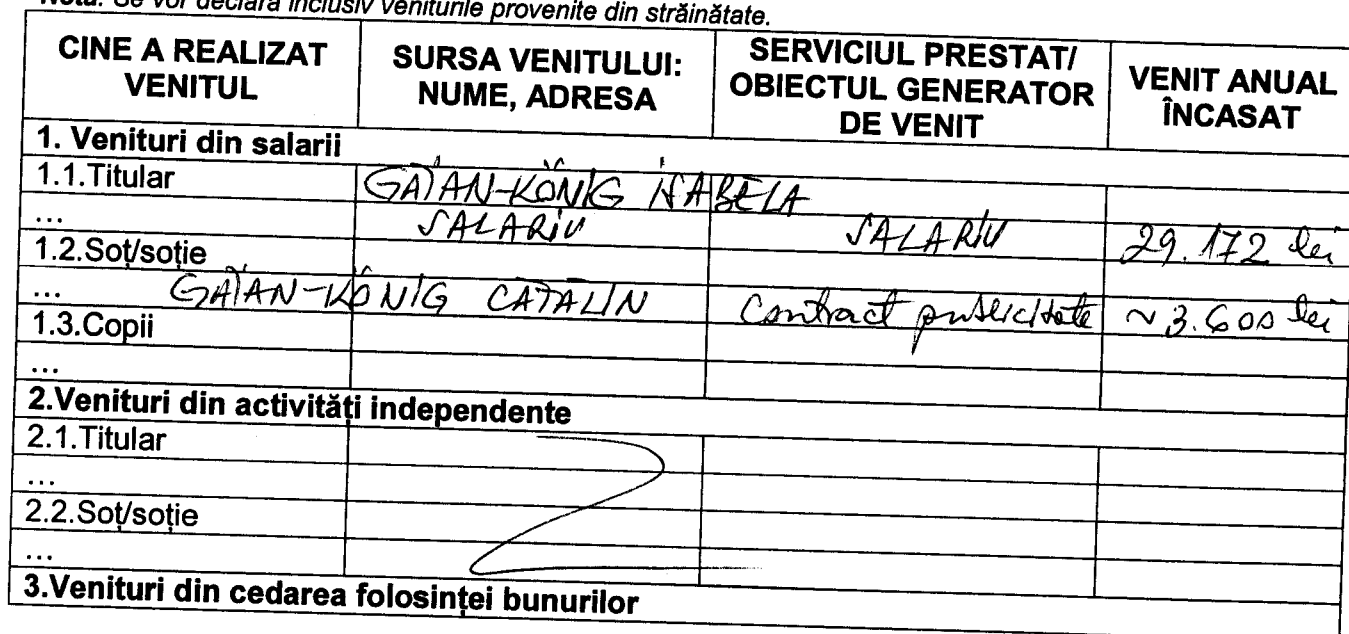 Nota: Se vor declara inclusiv veniturile provenite din străinătate.
CINE A REALIZAT VENITUL
SURSA VENITULUI: NUME, ADRESA
SERVICIUL PRESTAT/ OBIECTUL GENERATOR DE VENIT
VENIT ANUAL ÎNCASAT
1. Venituri din salarii
1.1.Titular GĂIAN-KÖNIG ISABELA
... SALARIU SALARIU 29.172 lei
1.2.Soț/soție
... GĂIAN-KÖNIG CĂTĂLIN Contract publicitate ~ 3.600 lei
1.3.Copii
...
2.Venituri din activități independente
2.1.Titular
...
2.2.Soț/soție
...
3.Venituri din cedarea folosinței bunurilor